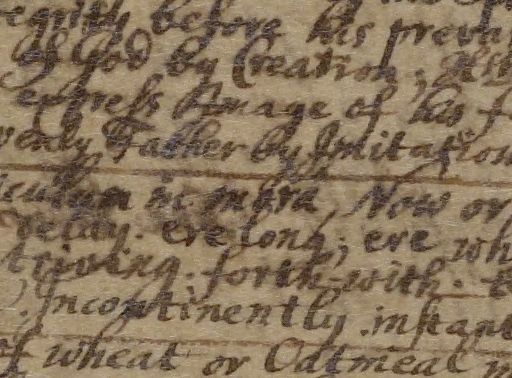 before his
of God by Creation;
express Image of his
Father by Imitation
in mora Now or
delay. ere long; ere
forth with.
Incontinently. instant
of wheat or Oatmeal